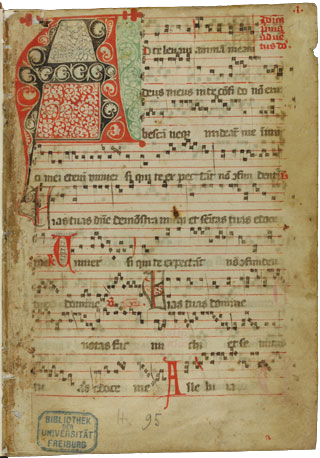 .I.
D te levavi animā meam
deus meus in te cōfi do nō eru
besca neq; irrideāt me inimi
ci mei etenim univer si qui te ex pectāt nō 9fun dent̄
ias tuas dn̄e demōstra michi et semitas tuas edoce
Univer si qui te expectāt nō 9funden
domine Vias tuas domine
notas fac mi chi et se mitas
tu as edoce me Alle lu ia
BIBLIOTHEK
DER
UNIVERSITÄT
FREIBURG
95